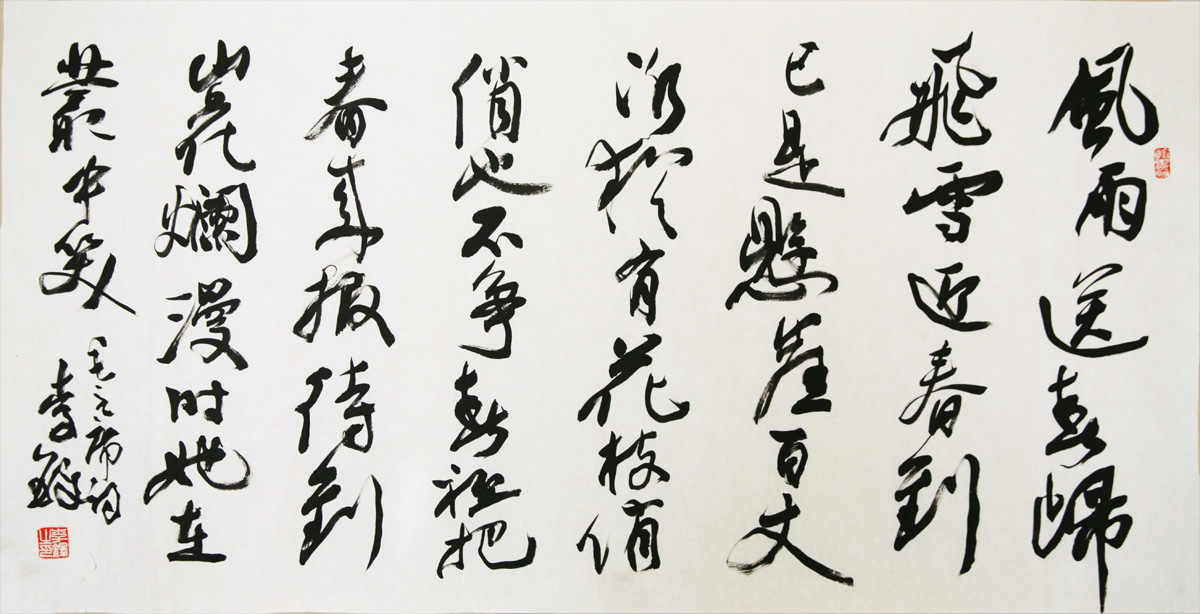 風雨送春歸
飛雪迎春到
已是懸崖百丈
冰猶有花枝俏
俏也不争春祇把
春來报待到
山花爛漫时她在
叢中笑
毛主席詞
李鐸
李鐸之印